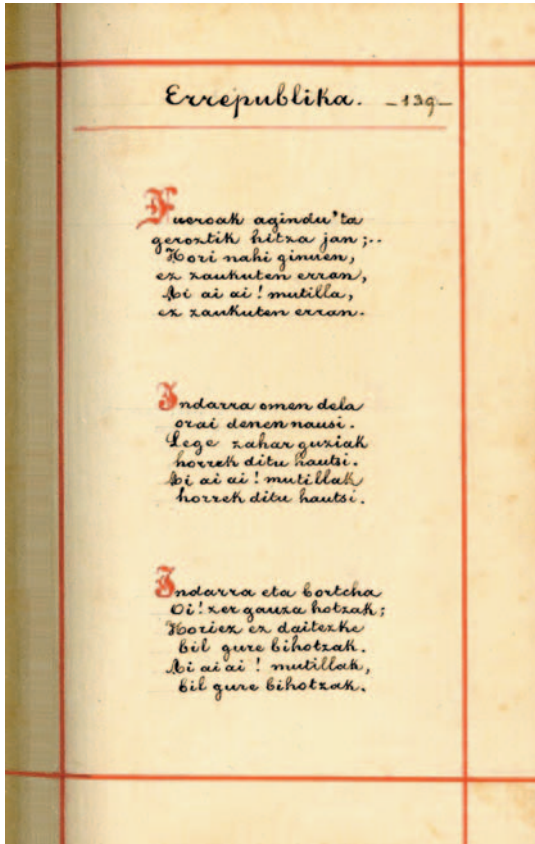 Errepublika. -139-
Fueroak agindu'ta
geroztik hitza jan;..
Hori nahi ginuen,
ez zaukuten erran,
Ai ai ai! mutilla,
ez zaukuten erran.
Indarra omen dela
orai denen nausi.
Lege zahar guziak
horrek ditu hautsi.
Ai ai ai! mutillak
horrek ditu hautsi.
Indarra eta bortcha
Oi! zer gauza hotzak;
Horiez ez daitezke
bil gure bihotzak.
Ai ai ai! mutillak,
bil gure bihotzak.